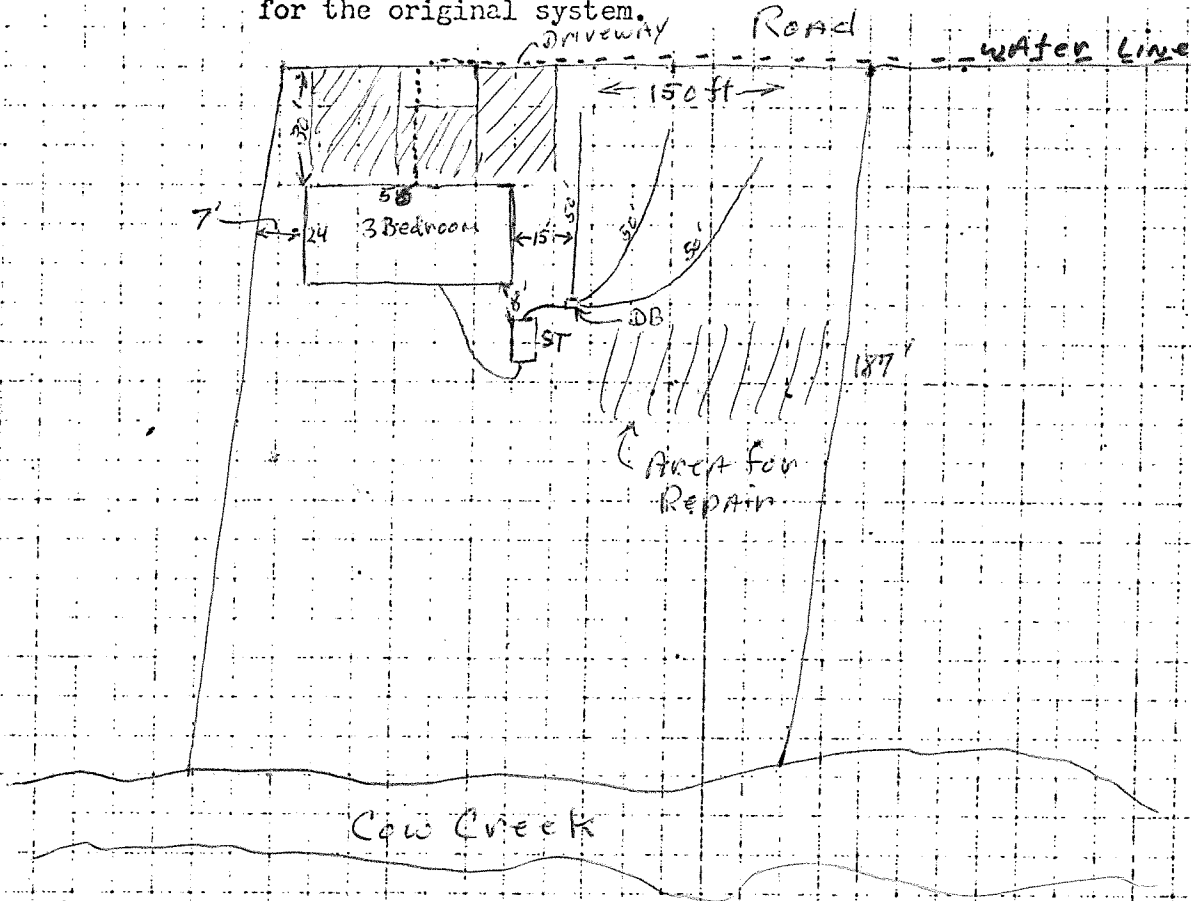 for the original system.
Driveway
Road
Water Line
150 ft
30'
7'
24
3 Bedroom
15'
50'
50'
50'
8'
DB
ST
187'
Area for
Repair
Cow Creek